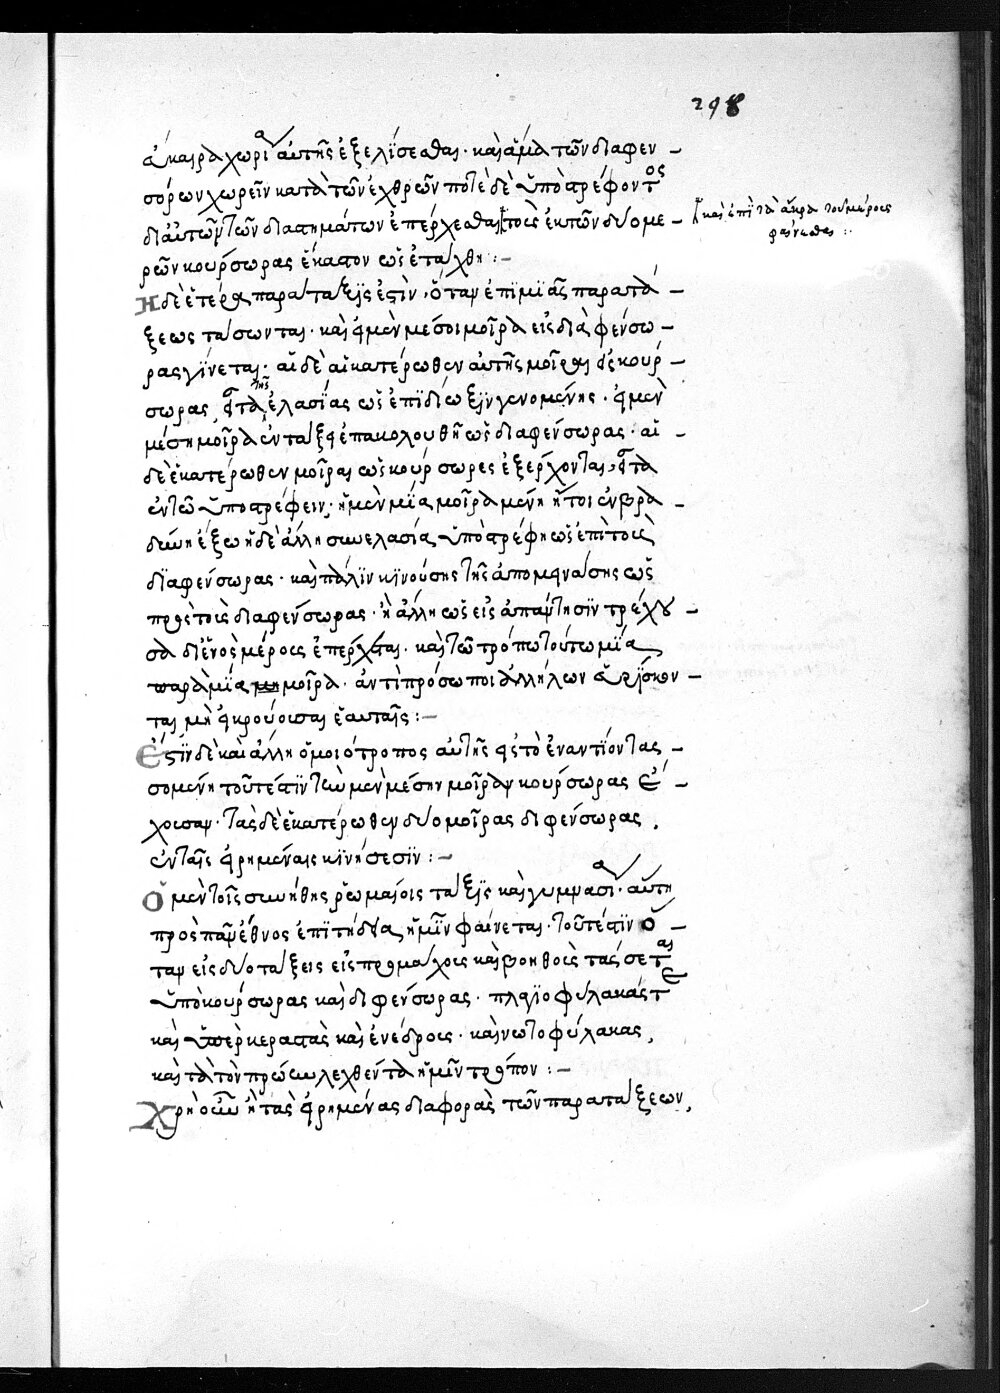 298
ἄκαιρα χωρία αὐτῆς ἐξελίσεσθαι· καὶ ἅμα τῶν διαφεν –
σόρων χωρεῖν κατὰ τῶν ἐχθρῶν ποτὲ δὲ ὑποστρέφοντος
δι' αὐτῶν τῶν διαστημάτων ἐπέρχεσθαι τοῖς ἐκ τῶν δύο με –
καὶ ἐπὶ τὰ ἄκρα τοῦ μέρους
φαίνεσθαι :
ρῶν κούρσωρας ἕκαστον ὡς ἐτάχθη : –
Ἡ δὲ ἑτέρα παράταξις ἐστὶν, ὅταν ἐπὶ μιᾶς παρατά –
ξεως τάσωνται· καὶ ἡ μὲν μέσοι μοῖρα εἰς διαφένσω –
ρας γίνεται· αἱ δὲ αἱ κατέρωθεν αὐτῆς μοῖραι εἰς κούρ –
σωρας, εἶτα τῆς ἐλασίας ὡς ἐπὶ διώξιν γενομένης· ἡ μὲν
μέση μοῖρα ἐν τάξει ἐπακολουθῆ ὡς διαφένσωρας· αἱ –
δὲ ἑκατέρωθεν μοῖραι ὡς κούρσωρες ἐξέρχονται, εἶτα
ἐν τῶ ὑποστρέφειν, ἡ μὲν μία μοῖρα μένη ἤτοι ἐν βρα –
δύνη ἔξω ἡ δὲ ἄλλη σὺν ἐλασία ὑποστρέφη ὡς ἐπὶ τοὺς
διαφένσωρας· καὶ πάλιν κινούσης τῆς ἀπομεινάσης ὡς
πρὸς τοὺς διαφένσωρας· ἡ ἄλλη ὡς εἰς ἀπάντησιν τρέχου –
σα δι' ἑνὸς μέρους ἐπέρχεται· καὶ τῶ τρόπω τούτω μία
παρὰ μία μοῖρα· ἀντιπρόσωποι ἀλλήλων εὑρίσκον –
ται μὴ κρούουσαι ἑαυταῖς : –
Ἔστιν δὲ καὶ ἄλλη ὁμοιότροπος αὐτῆς εἰς τὸ ἐναντίον τας –
σομένη τοῦτέστιν τὴν μὲν μέσην μοῖραν κούρσωρας ἔ –
χουσαν· τὰς δὲ ἑκατέρωθεν δύο μοίρας διφένσωρας,
ἐν ταῖς εἰρημέναις κινήσεσιν : –
Ὁ μέντοι συνήθης ῥωμαίοις τάξις καὶ γυμνασία· αὕτη
πρὸς πᾶν ἔθνος ἐπιτήδεια ἡμῖν φαίνεται· τοῦτέστιν ὅ –
ταν εἰς δύο τάξεις εἰς προμάχους καὶ βοηθοὺς τάσσεται
ὑπὸ κούρσωρας καὶ διφένσωρας· πλαγιοφύλακάς τε
καὶ ὑπερκεραστὰς καὶ ἐνέδρους· καὶ νωτοφύλακας,
κατὰ τὸν πρώην λεχθέντα ἡμῖν τρόπον : –
Χρὴ οὖν ἢ τὰς εἰρημένας διαφορὰς τῶν παρατάξεων,